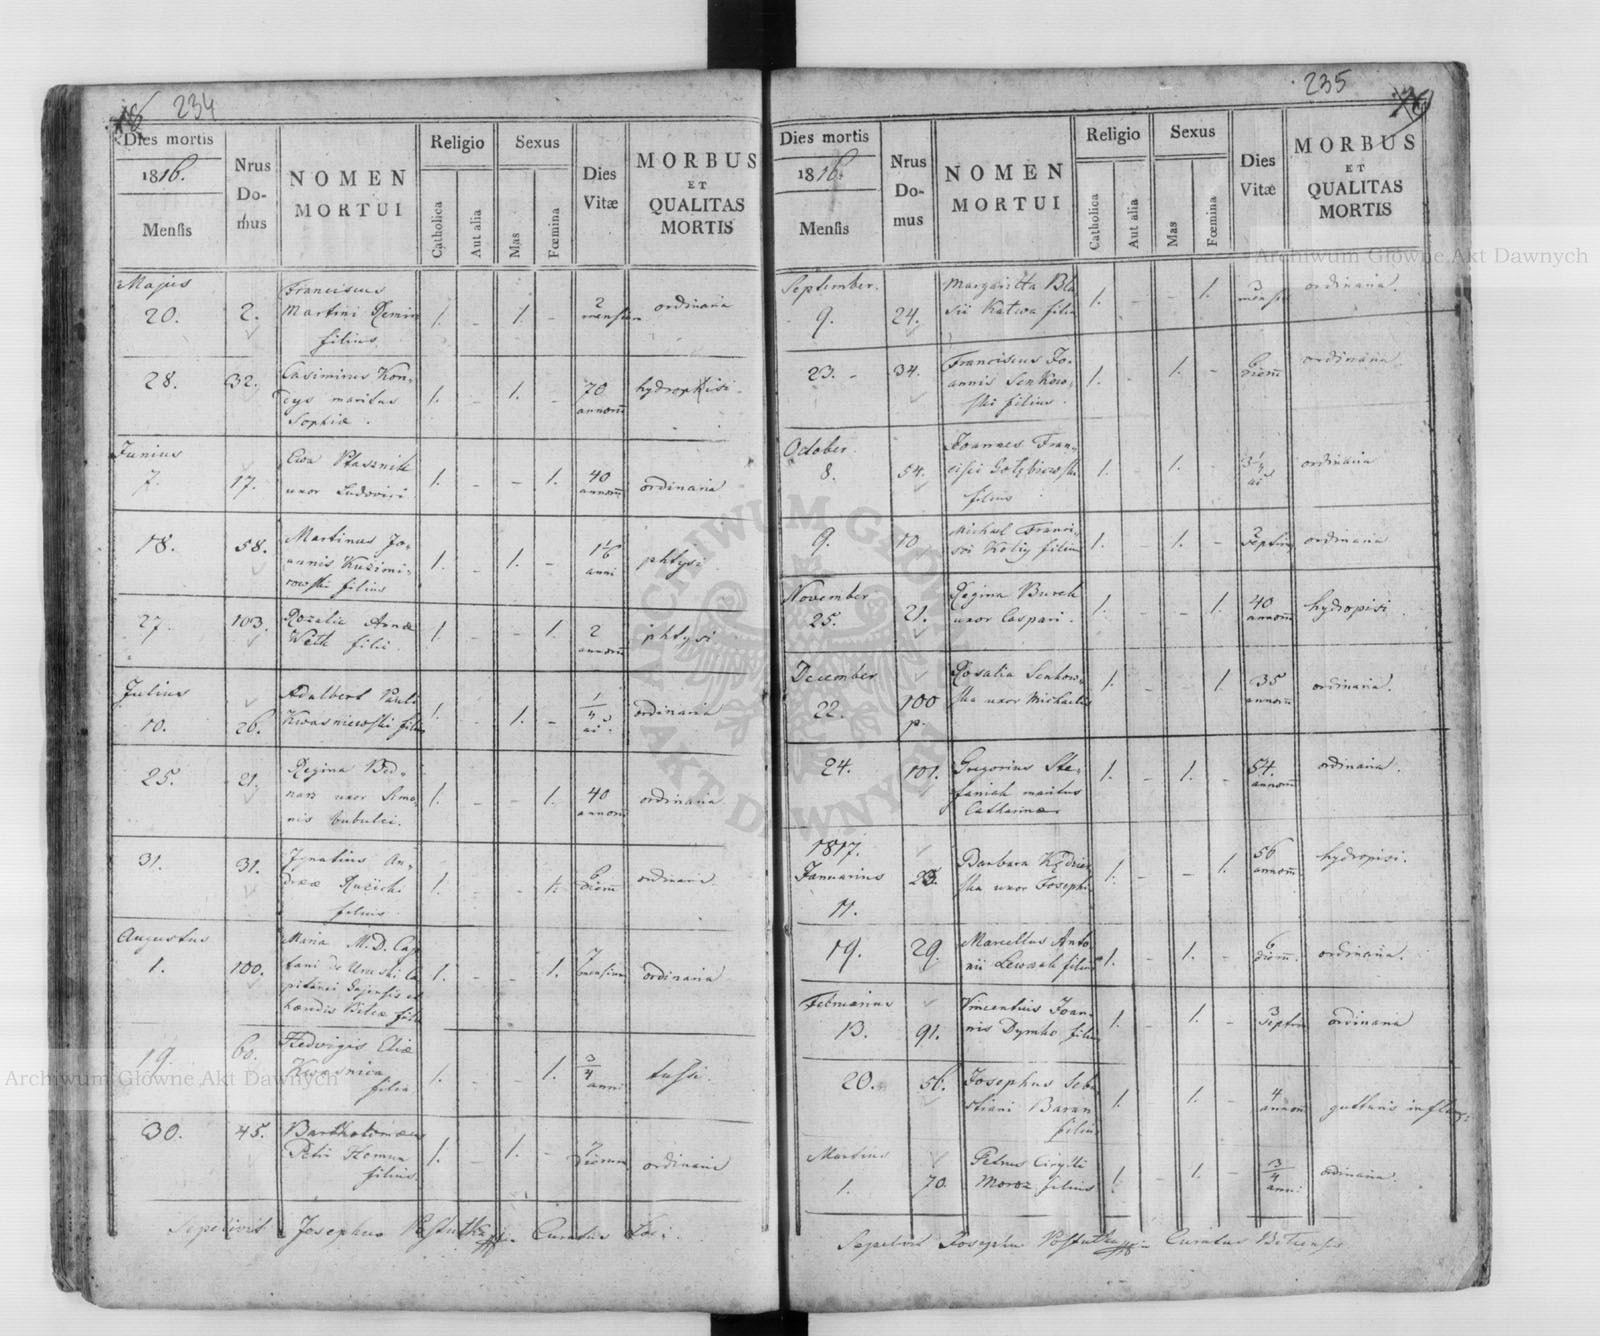 234
Dies mortis
1816.
Mensis
Nrus
Do-
mus
NOMEN
MORTUI
Religio
Catholica
Aut alia
Sexus
Mas
Fœmina
Dies
Vitæ
MORBUS
ET
QUALITAS
MORTIS
Majus
20. 2. Franciscus
Martini
filius 1. - 1. - 2
mensium ordinaria
28. 32. Casimirus Kon-
dys maritus
Sophiæ. 1. - 1. - 70
annorum
Junius
7. 17. Ewa Ptasznik
uxor Ludovici 1. - - 1. 40
annorum ordinaria
18. 58. Martinus Jo-
annis Kuzimi-
rowski filius 1. - 1. - 1 1/6
anni phtysi
27. 103. Rozalia Andreæ
Weth filii. 1. - - 1. 2
annorum phtysi
Julius
10. 26. Adalbert Pauli
Kwasniewski filius 1. - 1. - 1/4 ordinaria
25. 21. Regina Bed-
narz uxor Simo-
nis bubulci. 1. - - 1. 40
annorum ordinaria
31. 31. Ignatius An-
dreæ Ruzicki
filius 1. - - 1. 6
dierum ordinaria
Augustus
1. 100. Maria M. D. Cap-
tani de Uruski Ca-
pitanei et
filia 1. - - 1. 7
mensium ordinaria
19. 60. Hedvigis Eliæ
Kwasnica
filia 1. - - 1. 3/4
anni tussi.
30. 45. Bartholomæus
Petri Homun
filius 1. - 1. - 7
dierum ordinaria
Sepelivit Josephus Curatus loci.
235
Dies mortis
1816.
Mensis
Nrus
Do-
mus
NOMEN
MORTUI
Religio
Catholica
Aut alia
Sexus
Mas
Fœmina
Dies
Vitæ
MORBUS
ET
QUALITAS
MORTIS
September.
9. 24. Margaritta Bla-
sii Katwa filia 1. - - 1. mensis ordinaria.
23. - 34. Franciscus Jo-
annis Senkow-
ski filius. 1. - 1. - 6
dierum ordinaria
October
8. 54. Joannes Fran-
cisci Gołębiowski
filius 1. - 1. - 3 1/4 ordinaria
9. 10 Michael Franci-
sci Kolig filius 1. - 1. - septim. ordinaria
November
25. 21. Regina Burek
uxor Caspari. 1. - - 1. 40
annorum hydropisi.
December
22. 100
p. Rosalia Senkow-
ska uxor Michaelis 1. - - 1 35
annorum ordinaria.
24. 101. Gregorius Ste-
faniak maritus
Catharinæ 1. - 1. - 54.
annorum ordinaria.
1817.
Januarius
11. 23. Barbara Kędzier-
ska uxor Josephi 1. - - 1. 56
annorum hydropisi.
19. 29. Marcellus Anto-
nii Lewaak filius 1. - 1. - 6
dierum ordinaria.
Februarius
13. 91. Vincentius Joan-
nis Dymko filius 1. - 1. - septim ordinaria
20. 56. Josephus Seba-
stiani Baran
filius 1. - 1. - 4
annorum gutturis
Martius
1. 70. Petrus Cirylli
Moroz filius 1. - 1. - 3/4
anni ordinaria.
Sepelivit Josephus Curatus
Archiwum Główne Akt Dawnych
Archiwum Główne Akt Dawnych
ARCHIWUM GŁÓWNE AKT DAWNYCH